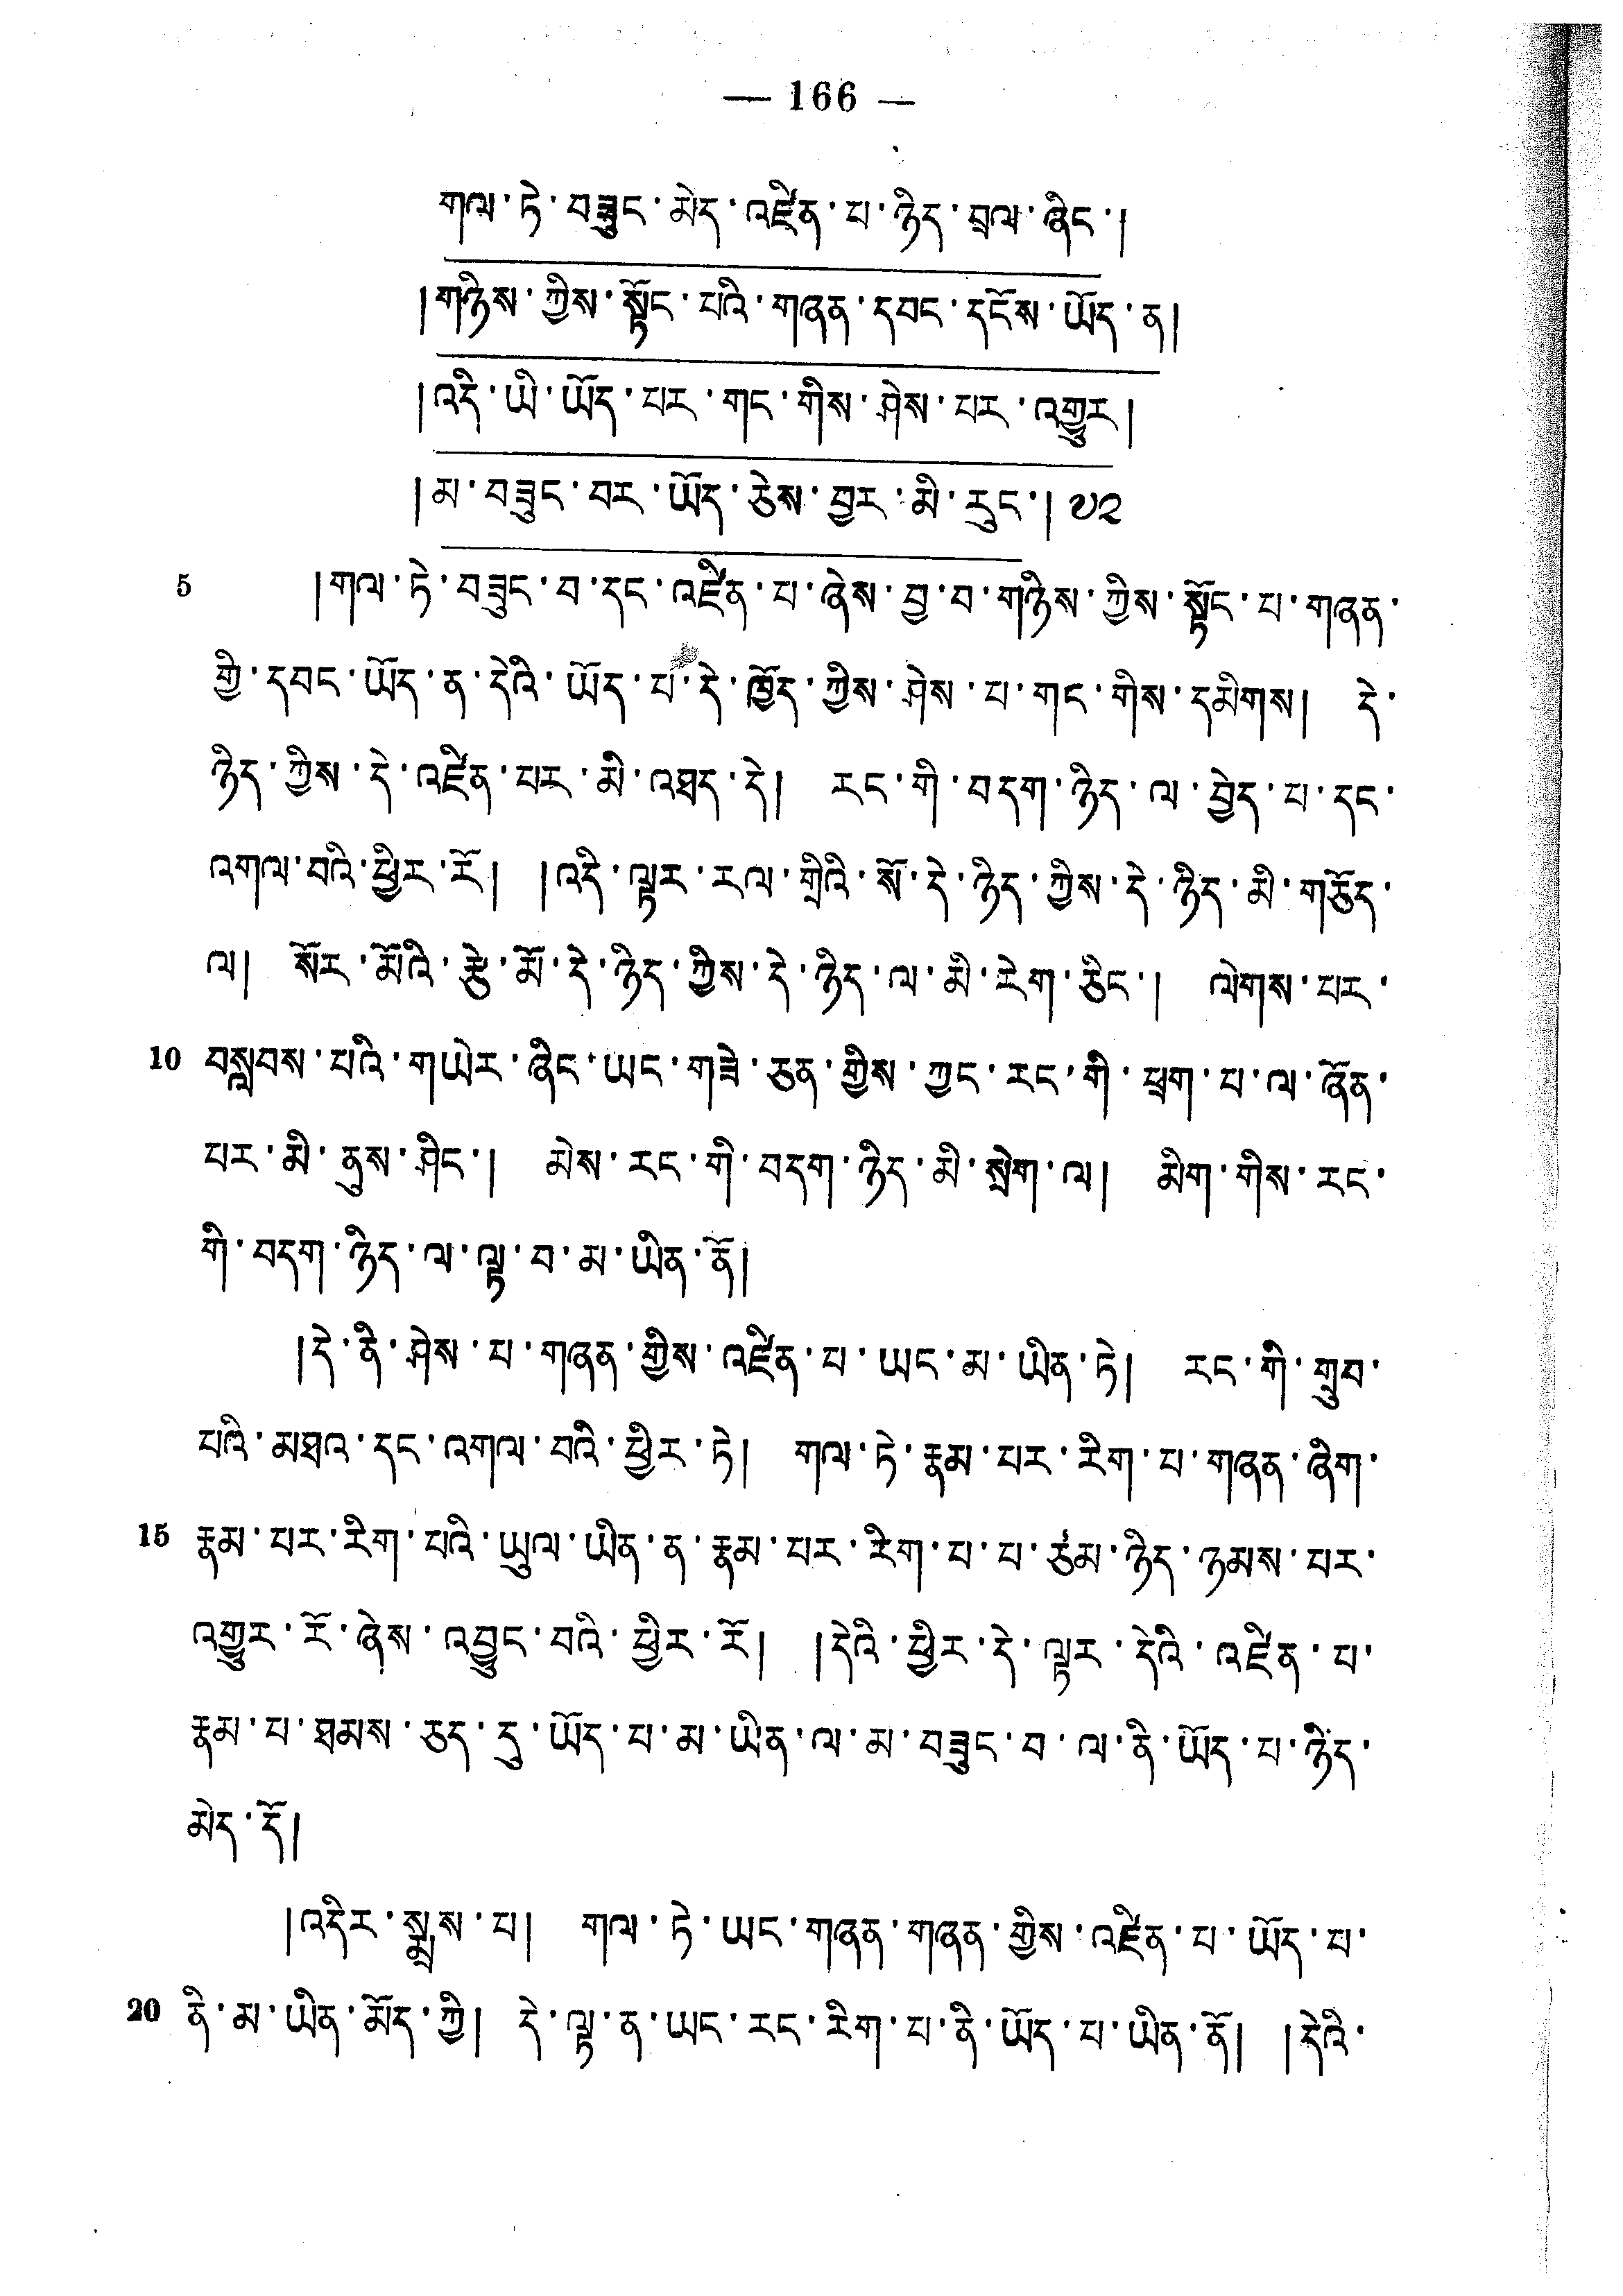 — 166 —
གལ་ཏེ་བཟུང་མེད་འཛིན་པ་ཉིད་བྲལ་ཞིང་།
།གཉིས་ཀྱིས་སྟོང་པའི་གཞན་དབང་དངོས་ཡོད་ན།
།འདི་ཡི་ཡོད་པར་གང་གིས་ཤེས་པར་འགྱུར།
།མ་བཟུང་བར་ཡོད་ཅེས་བྱར་མི་རུང་། ༧༢
5 །གལ་ཏེ་བཟུང་བ་དང་འཛིན་པ་ཞེས་བྱ་བ་གཉིས་ཀྱིས་སྟོང་པ་གཞན་
གྱི་དབང་ཡོད་ན་དེའི་ཡོད་པ་དེ་ཁྱོད་ཀྱིས་ཤེས་པ་གང་གིས་དམིགས། དེ་
ཉིད་ཀྱིས་དེ་འཛིན་པར་མི་འཐད་དེ། རང་གི་བདག་ཉིད་ལ་བྱེད་པ་དང་
འགལ་བའི་ཕྱིར་རོ། །འདི་ལྟར་རལ་གྲིའི་སོ་དེ་ཉིད་ཀྱིས་དེ་ཉིད་མི་གཅོད་
ལ། སོར་མོའི་རྩེ་མོ་དེ་ཉིད་ཀྱིས་དེ་ཉིད་ལ་མི་རེག་ཅིང་། ལེགས་པར་
10 བསླབས་པའི་གཡེར་ཞིང་ཡང་གཟེ་ཅན་གྱིས་ཀྱང་རང་གི་ཕྲག་པ་ལ་ཞོན་
པར་མི་ནུས་ཤིང་། མེས་རང་གི་བདག་ཉིད་མི་སྲེག་ལ། མིག་གིས་རང་
གི་བདག་ཉིད་ལ་ལྟ་བ་མ་ཡིན་ནོ།
།དེ་ནི་ཤེས་པ་གཞན་གྱིས་འཛིན་པ་ཡང་མ་ཡིན་ཏེ། རང་གི་གྲུབ་
པའི་མཐའ་དང་འགལ་བའི་ཕྱིར་ཏེ། གལ་ཏེ་རྣམ་པར་རིག་པ་གཞན་ཞིག་
15 རྣམ་པར་རིག་པའི་ཡུལ་ཡིན་ན་རྣམ་པར་རིག་པ་པ་ཙམ་ཉིད་ཉམས་པར་
འགྱུར་རོ་ཞེས་འབྱུང་བའི་ཕྱིར་རོ། །དེའི་ཕྱིར་དེ་ལྟར་དེའི་འཛིན་པ་
རྣམ་པ་ཐམས་ཅད་དུ་ཡོད་པ་མ་ཡིན་ལ་མ་བཟུང་བ་ལ་ནི་ཡོད་པ་ཉིད་
མེད་དོ།
།འདིར་སྨྲས་པ། གལ་ཏེ་ཡང་གཞན་གཞན་གྱིས་འཛིན་པ་ཡོད་པ་
20 ནི་མ་ཡིན་མོད་ཀྱི། དེ་ལྟ་ན་ཡང་རང་རིག་པ་ནི་ཡོད་པ་ཡིན་ནོ། །དེའི་